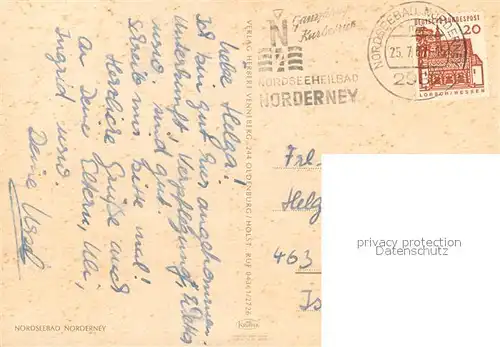 Liebe Helga!
Ich bin gut hier angekommen.
Unterkunft, Verpflegung, Wetter
sind gut.
Schreib mir bitte mal!
Herzliche Grüße auch
an Deine Eltern, Uli,
Ingrid
Deine
NORDSEEBAD NORDERNEY
VERLAG HERBERT VENNEBERG, 244 OLDENBURG/HOLST. RUF 04361/2726
Krüger
N
Ganzjähriger
Kurbetrieb
NORDSEEHEILBAD
NORDERNEY
NORDSEEBAD NORDERNEY
25.7.
DEUTSCHE BUNDESPOST
20
LORSCH/HESSEN
Frl.
Helg
463
privacy protection
watermark